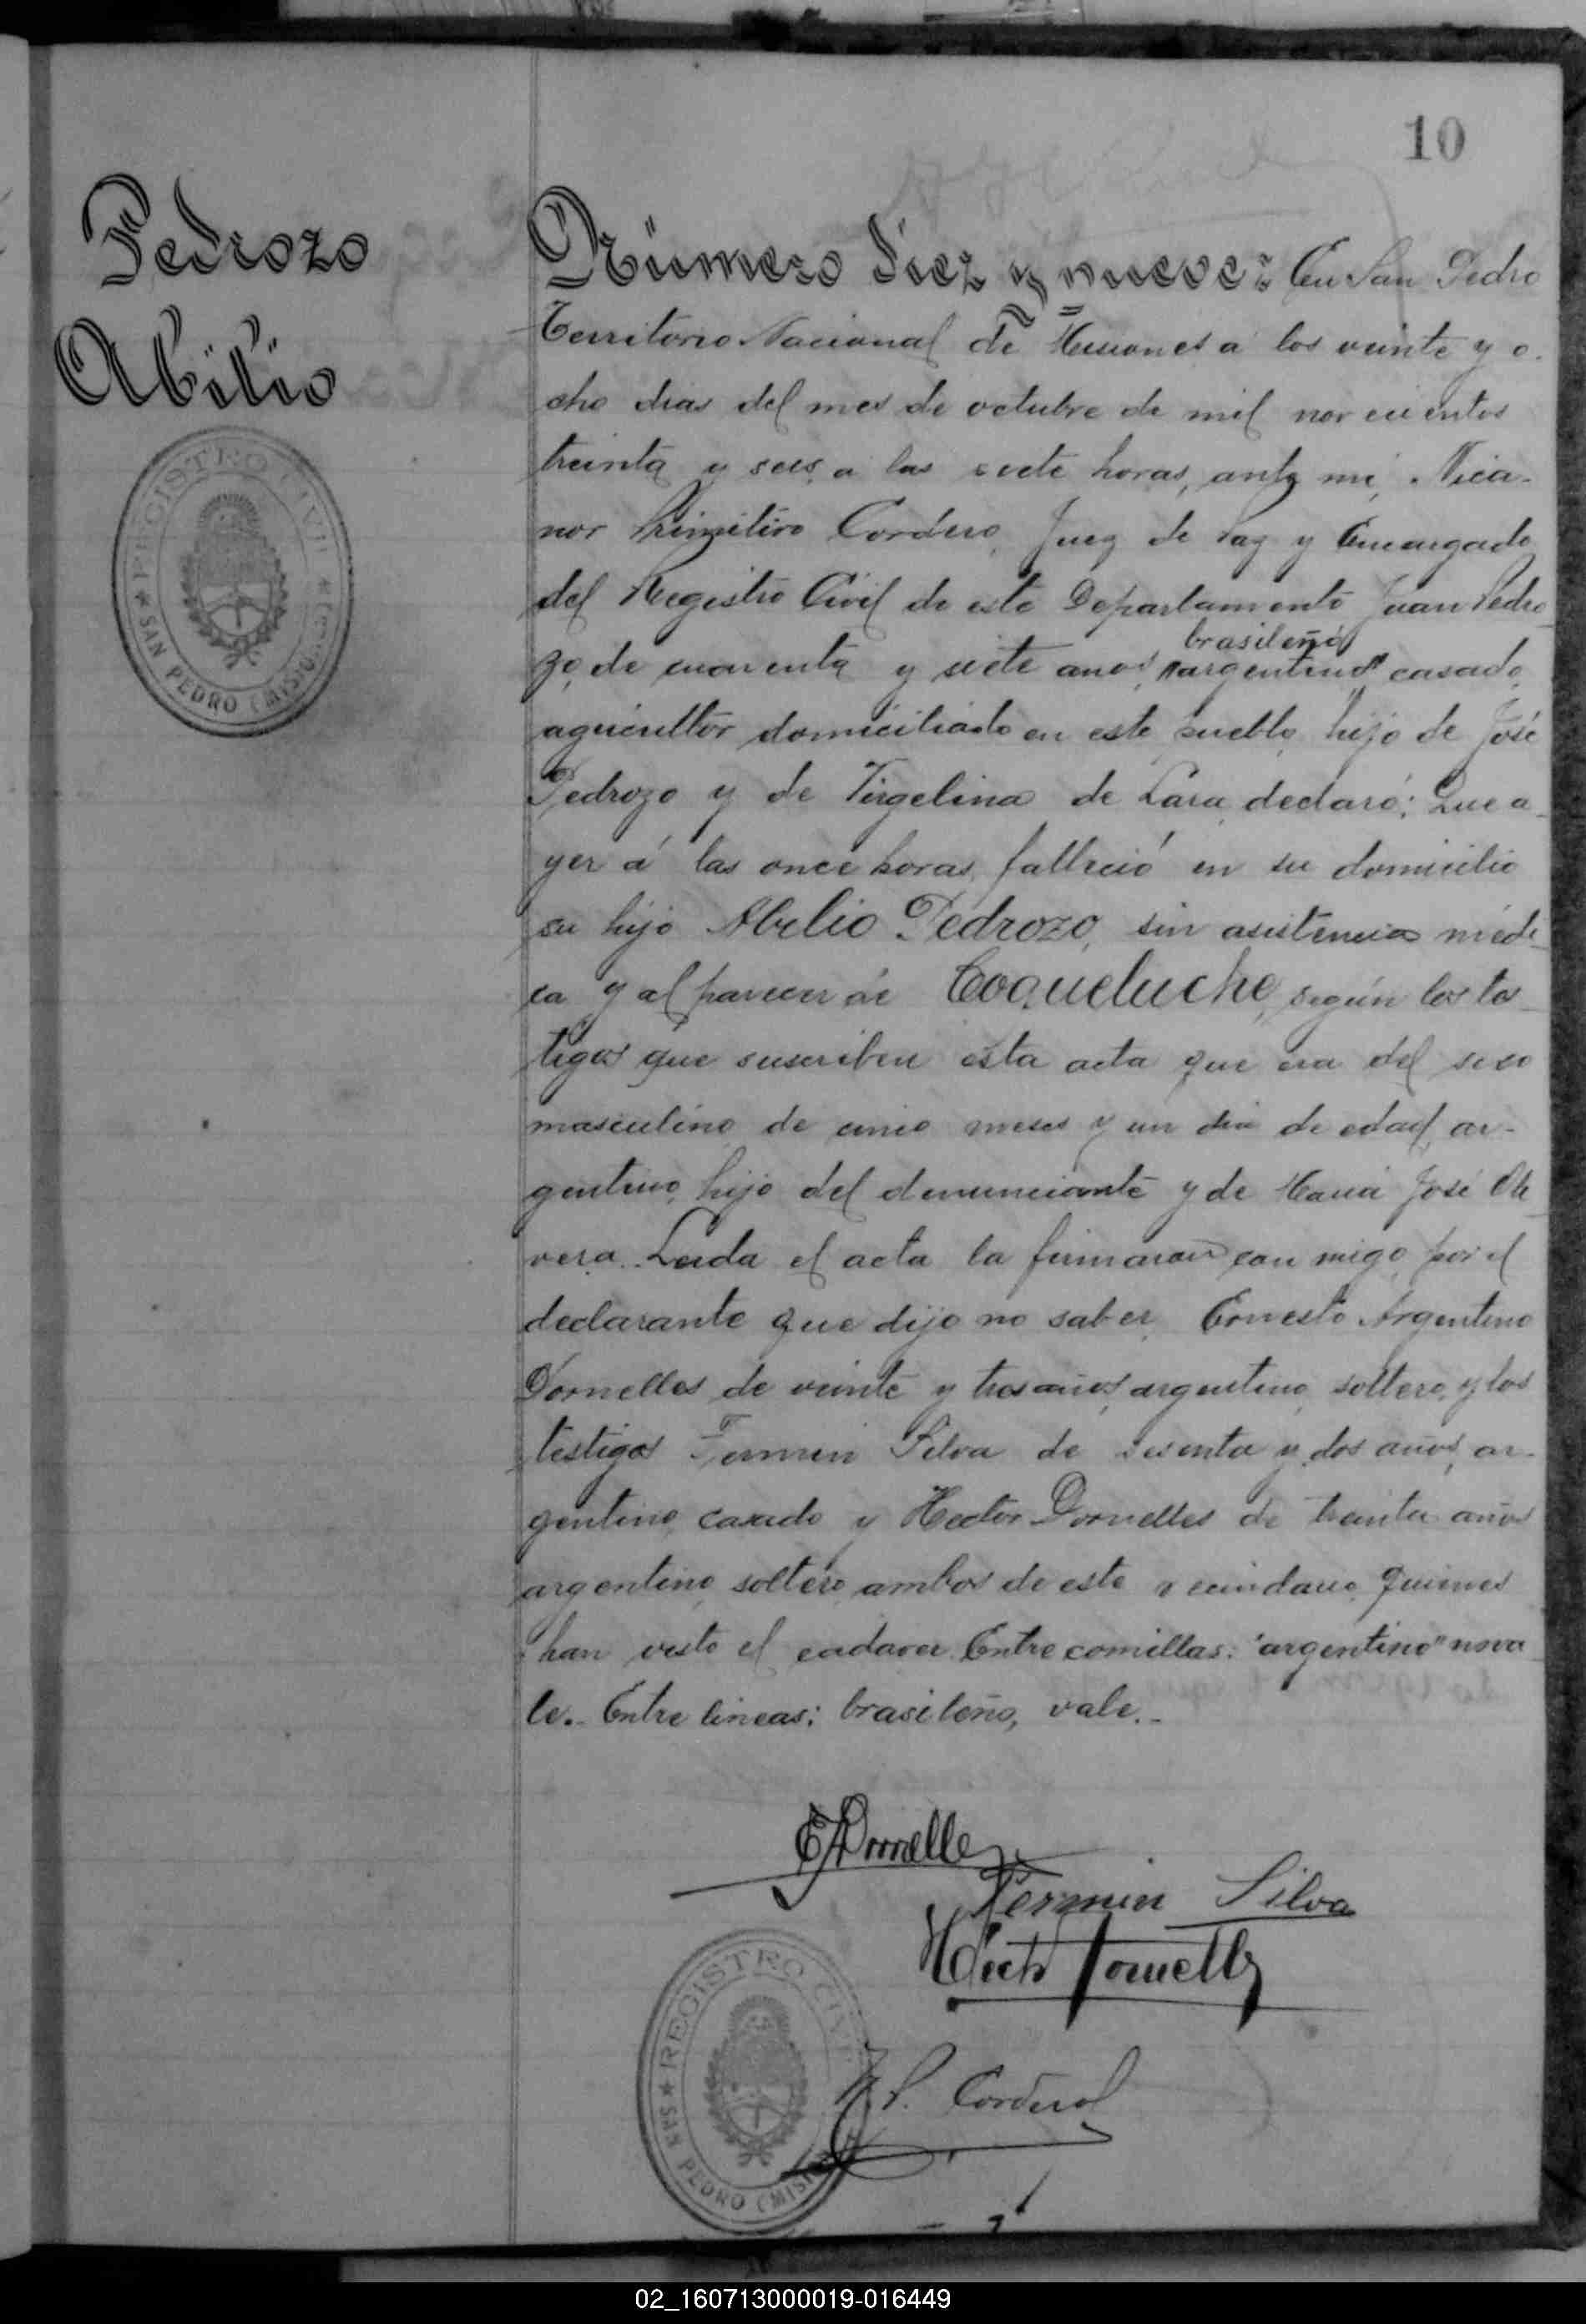 10
Pedrozo
Abilio
★ REGISTRO CIVIL ★
SAN PEDRO (MISIONES)
Número Diez y nueve: En San Pedro
Territorio Nacional de Misiones a los veinte y o-
cho dias del mes de octubre de mil novecientos
treinta y seis, a las siete horas, ante mi, Nica-
nor Primitivo Cordero, Juez de Paz y Encargado
del Registro Civil de este Departamento Juan Pedro-
brasileño
zo, de cuarenta y siete años, "argentino" casado,
agricultor domiciliado en este pueblo, hijo de José
Pedrozo y de Virgelina de Lara, declaró: Que a-
yer á las once horas, falleció en su domicilio
su hijo Abilio Pedrozo, sin asistencia médi-
ca y al parecer de Coqueluche, según los tes-
tigos que suscriben esta acta que era del sexo
masculino de cinco meses y un dia de edad, ar-
gentino, hijo del denunciante y de Maria José Oli-
vera. Leida el acta la firmaron con migo, por el
declarante que dijo no saber, Ernesto Argentino
Dornelles de veinte y tres años, argentino, soltero, y los
testigos Fermin Silva de sesenta y dos años, ar-
gentino, casado y Hector Dornelles de treinta años
argentino, soltero, ambos de este vecindario, quienes
han visto el cadaver. Entre comillas: "argentino" no va-
le.- Entre lineas: brasileño, vale.-
E A Dornelles
Fermin Silva
Hector Dornelles
N. P. Cordero
★ REGISTRO CIVIL
SAN PEDRO (MISIONES)
02_160713000019-016449